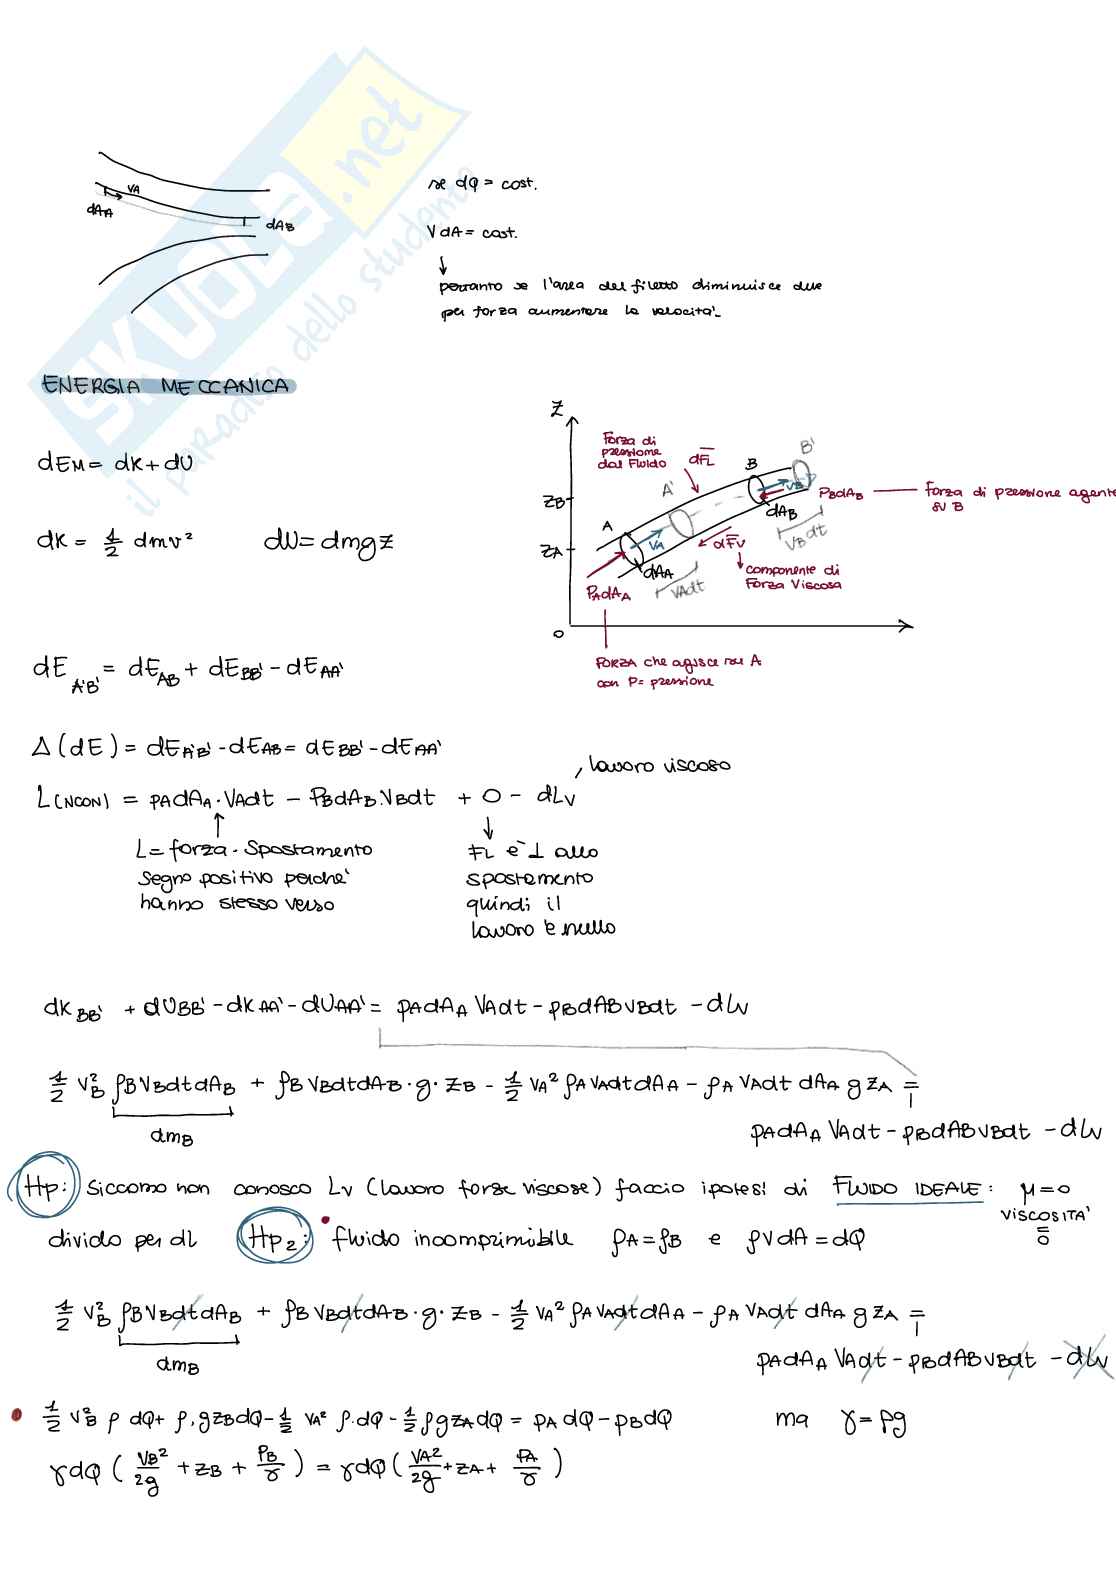 SKUOLA.net
il paradiso dello studente
VA
dAA
dAB
se dQ = cost.
VdA = cost.
↓
pertanto se l'area del filetto diminuisce deve
per forza aumentare la velocità.
ENERGIA MECCANICA
dEM = dK + dU
dK = 1/2 dmv²    dU = dmgz
z
Forza di
pressione
dal Fluido
dFL
B
B'
A'
ZB
VB
PBdAB
Forza di pressione agente
su B
dAB
A
VBdt
ZA
VA
dFv
dAA
componente di
Forza Viscosa
PAdAA
VAdt
O
FORZA che agisce su A
con P = pressione
dE A'B' = dEAB + dEBB' - dEAA'
Δ(dE) = dEA'B' - dEAB = dEBB' - dEAA'
, lavoro viscoso
L(NCON) = pAdAA · VAdt - PBdAB·VBdt + O - dLv
L = forza · spostamento
segno positivo perché
hanno stesso verso
FL è ⊥ allo
spostamento
quindi il
lavoro è nullo
dKBB' + dUBB' - dKAA' - dUAA' = pAdAA VAdt - pBdABVBdt - dLv
1/2 VB² ρBVBdtdAB + ρB VBdtdAB · g · ZB - 1/2 VA² ρA VAdtdAA - ρA VAdt dAA g ZA =
dmB
pAdAA VAdt - pBdABVBdt - dLv
Hp: Siccome non conosco Lv (lavoro forze viscose) faccio ipotesi di FLUIDO IDEALE: μ = 0
VISCOSITA'
= 0
divido per dt Hp2: fluido incomprimibile ρA = ρB e ρVdA = dQ
1/2 VB² ρBVBdtdAB + ρB VBdtdAB · g · ZB - 1/2 VA² ρA VAdtdAA - ρA VAdt dAA g ZA =
dmB
pAdAA VAdt - pBdABVBdt - dLv
• 1/2 VB² ρ dQ + ρ·gZBdQ - 1/2 VA² ρ·dQ - 1/2 ρgZAdQ = pAdQ - pBdQ    ma γ = ρg
γdQ ( VB²/2g + ZB + PB/γ ) = γdQ ( VA²/2g + ZA + PA/γ )